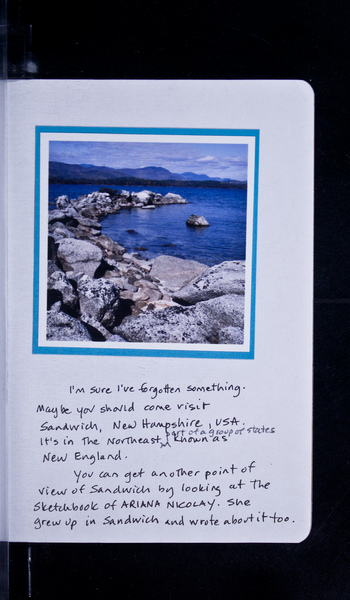 I'm sure I've forgotten something.
Maybe you should come visit
Sandwich, New Hampshire, USA.
part of a group of states
It's in the Northeast, known as
New England.
You can get another point of
view of Sandwich by looking at the
Sketchbook of ARIANA NICOLAY. She
grew up in Sandwich and wrote about it too.